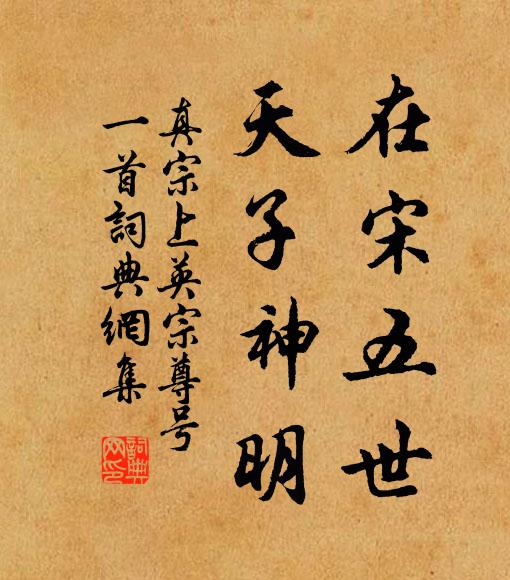 在宋五世
天子神明
真宗上英宗尊号
一首詞典網集
詞典网印